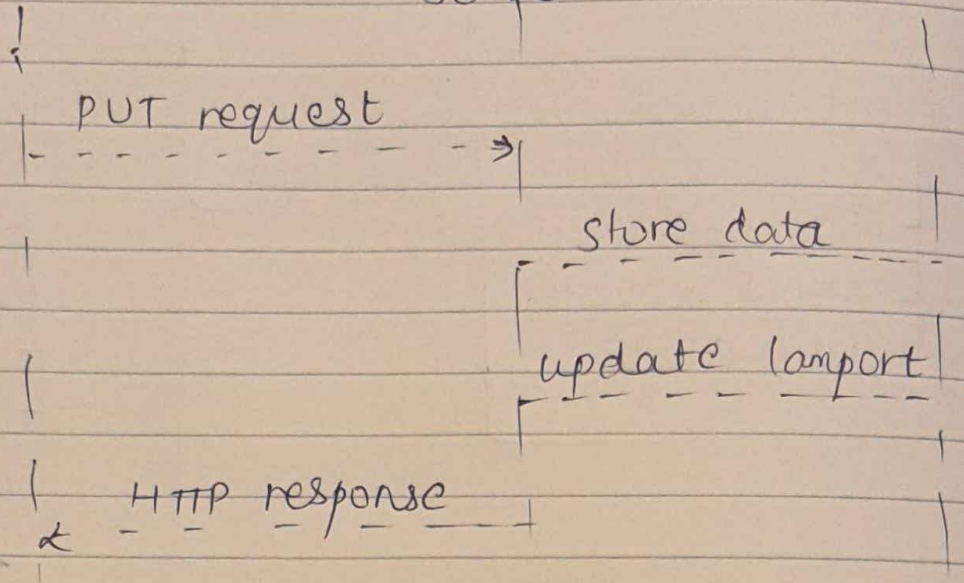 PUT request
store data
update lamport
HTTP response